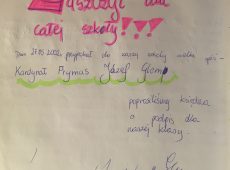 Zaszczyt dla
całej szkoły!!!
Dnia 27.05.2002 przyjechał do naszej szkoły wielki gość -
Kardynał Prymas Józef Glemp.
poprosiliśmy księdza
o podpis dla
naszej klasy.